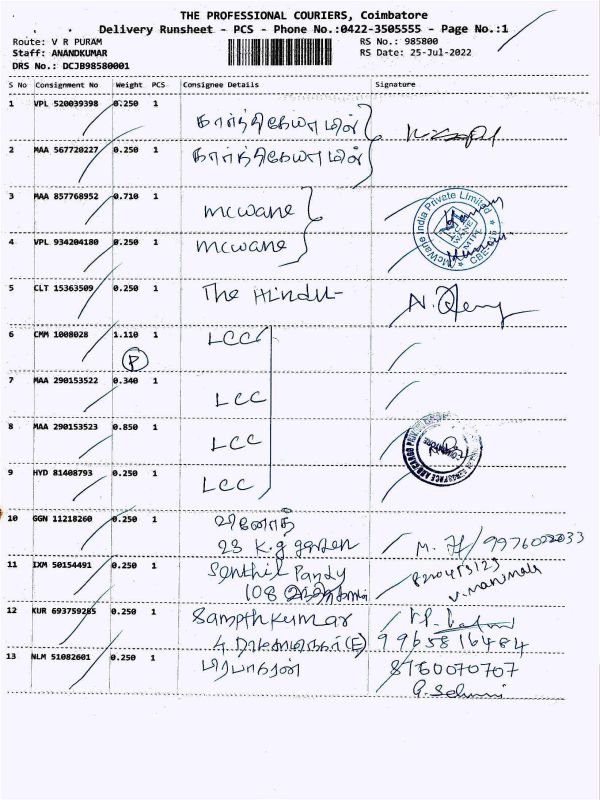 THE PROFESSIONAL COURIERS, Coimbatore
Delivery Runsheet - PCS - Phone No.:0422-3505555 - Page No.:1
Route: V R PURAM RS No.: 985800
Staff: ANANDKUMAR RS Date: 25-Jul-2022
DRS No.: DCJB98580001
S No Consignment No Weight PCS Consignee Details Signature
1 VPL 520039398 0.250 1 கார்த்திகேயாயினி
2 MAA 567720227 0.250 1
3 MAA 857768952 0.710 1 mcwane
McWane India Private Limited
CBE
4 VPL 934204180 0.250 1 mcwane
5 CLT 15363509 0.250 1 The Hindu
6 CMM 1008028 1.110 1 LCC
P
7 MAA 290153522 0.340 1 LCC
8 MAA 290153523 0.850 1 LCC
9 HYD 81408793 0.250 1 LCC
10 GGN 11218260 0.250 1 வினோத்
23 K.g garden
11 IXM 50154491 0.250 1 Senthil Pandy
108
12 KUR 693759285 0.250 1 Sampthkumar
4 (E) 9965816484
13 NLM 51082601 0.250 1 பிரபாகரன் 8760070707